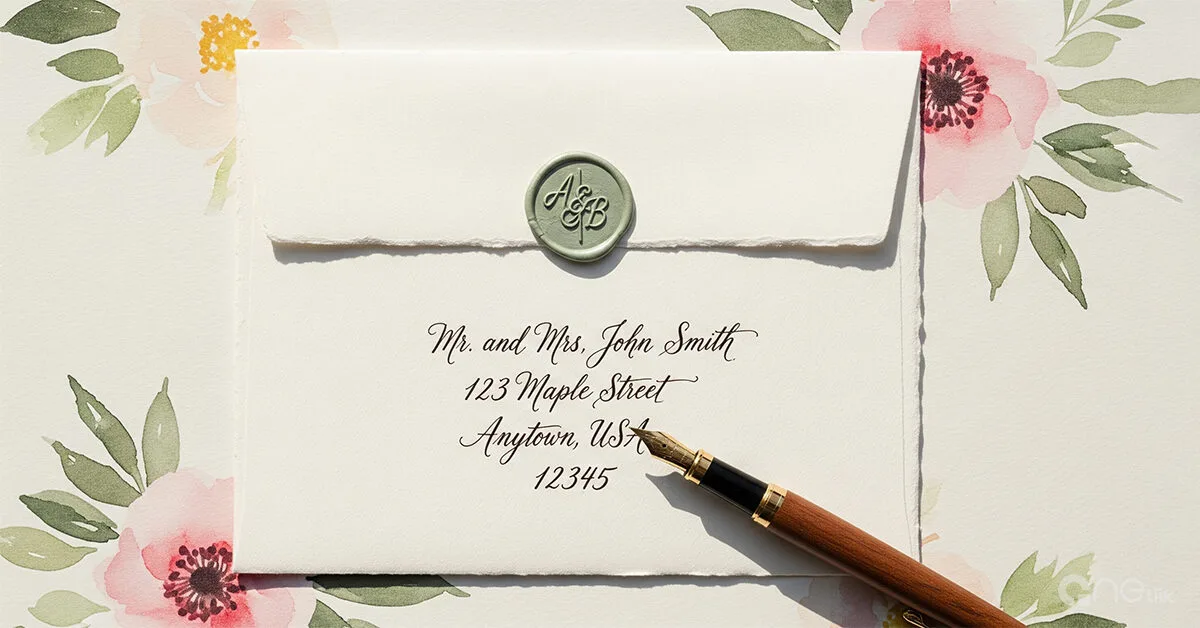 A&B
Mr. and Mrs, John Smith
123 Maple Street
Anytown, USA
12345